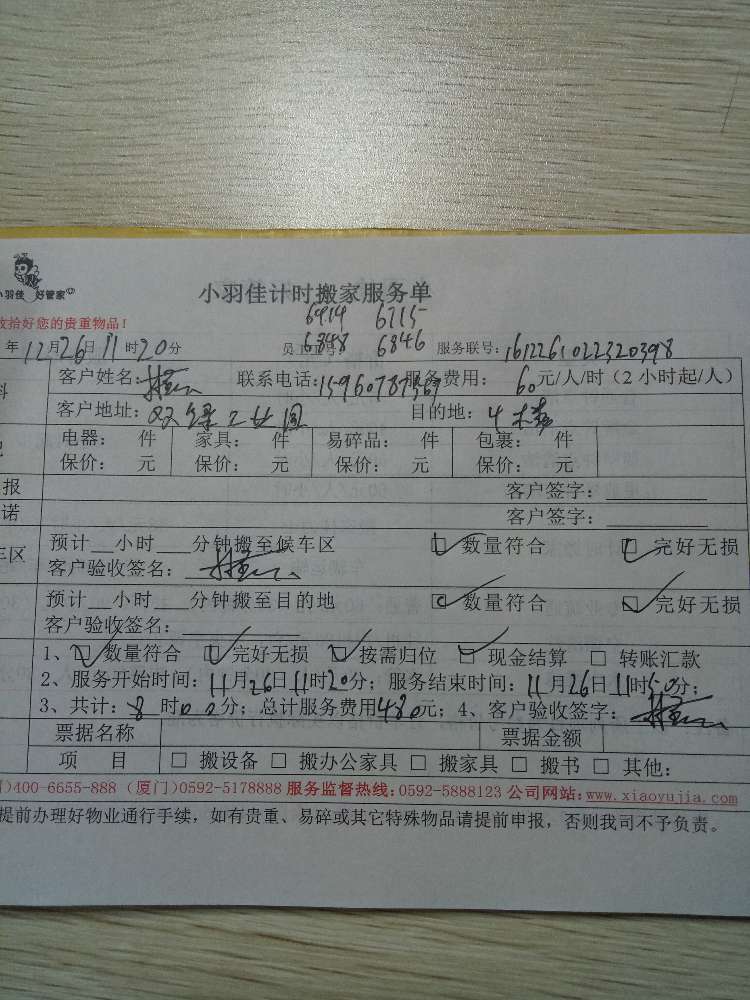 小羽佳 好管家
小羽佳计时搬家服务单
收拾好您的贵重物品！
6914 6715
年12月26日11时20分 员工编号： 6848 6846 服务联号：1612261022320398
客户姓名： 联系电话：15960787569 服务费用： 60元/人/时（2小时起/人）
客户地址： 目的地：4楼
电器： 件 家具： 件 易碎品： 件 包裹： 件
保价： 元 保价： 元 保价： 元 保价： 元
报 客户签字：
诺 客户签字：
预计__小时___分钟搬至候车区 □ 数量符合 □ 完好无损
车区 客户验收签名：
预计__小时___分钟搬至目的地 □ 数量符合 □ 完好无损
客户验收签名：
1、□ 数量符合 □ 完好无损 □ 按需归位 □ 现金结算 □ 转账汇款
2、服务开始时间：11月26日11时20分；服务结束时间：11月26日11时50分；
3、共计：8 时00分；总计服务费用480元；4、客户验收签字：
票据名称 票据金额
项 目 □ 搬设备 □ 搬办公家具 □ 搬家具 □ 搬书 □ 其他：
)400-6655-888（厦门）0592-5178888 服务监督热线：0592-5888123 公司网站：www.xiaoyujia.com
提前办理好物业通行手续，如有贵重、易碎或其它特殊物品请提前申报，否则我司不予负责。